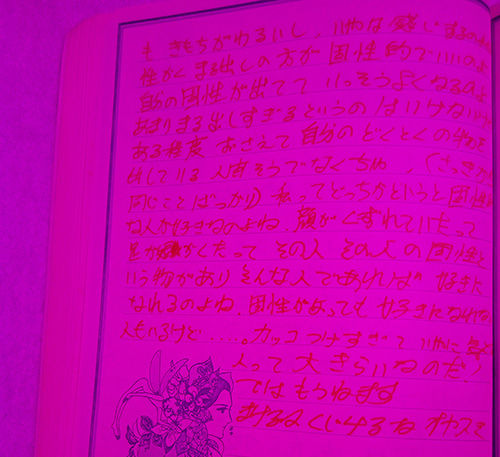 も きもちがわるいし、いやな感じ
性かく まる出しの方が 固性的でいいのよ
自分の固性が出てて いい。そうよくなるのよ
あまりまる出しすぎるというのはいけない
ある程度 おさえて 自分のどくとくの物を
出している人 そうでなくちゃ、(さっきから
同じことばっかり) 私ってどっちかというと 固性的
な人が好きなのよね、顔がくずれていたって
足が かくたって その人 その人の固性と
いう物があり そんな人であれば 好きに
なれるのよね、固性があっても 好きになれない
人もいるけど……。カッコつけすぎて いやに
人って 大きらいなのだ!
ではもうねます
オヤスミ